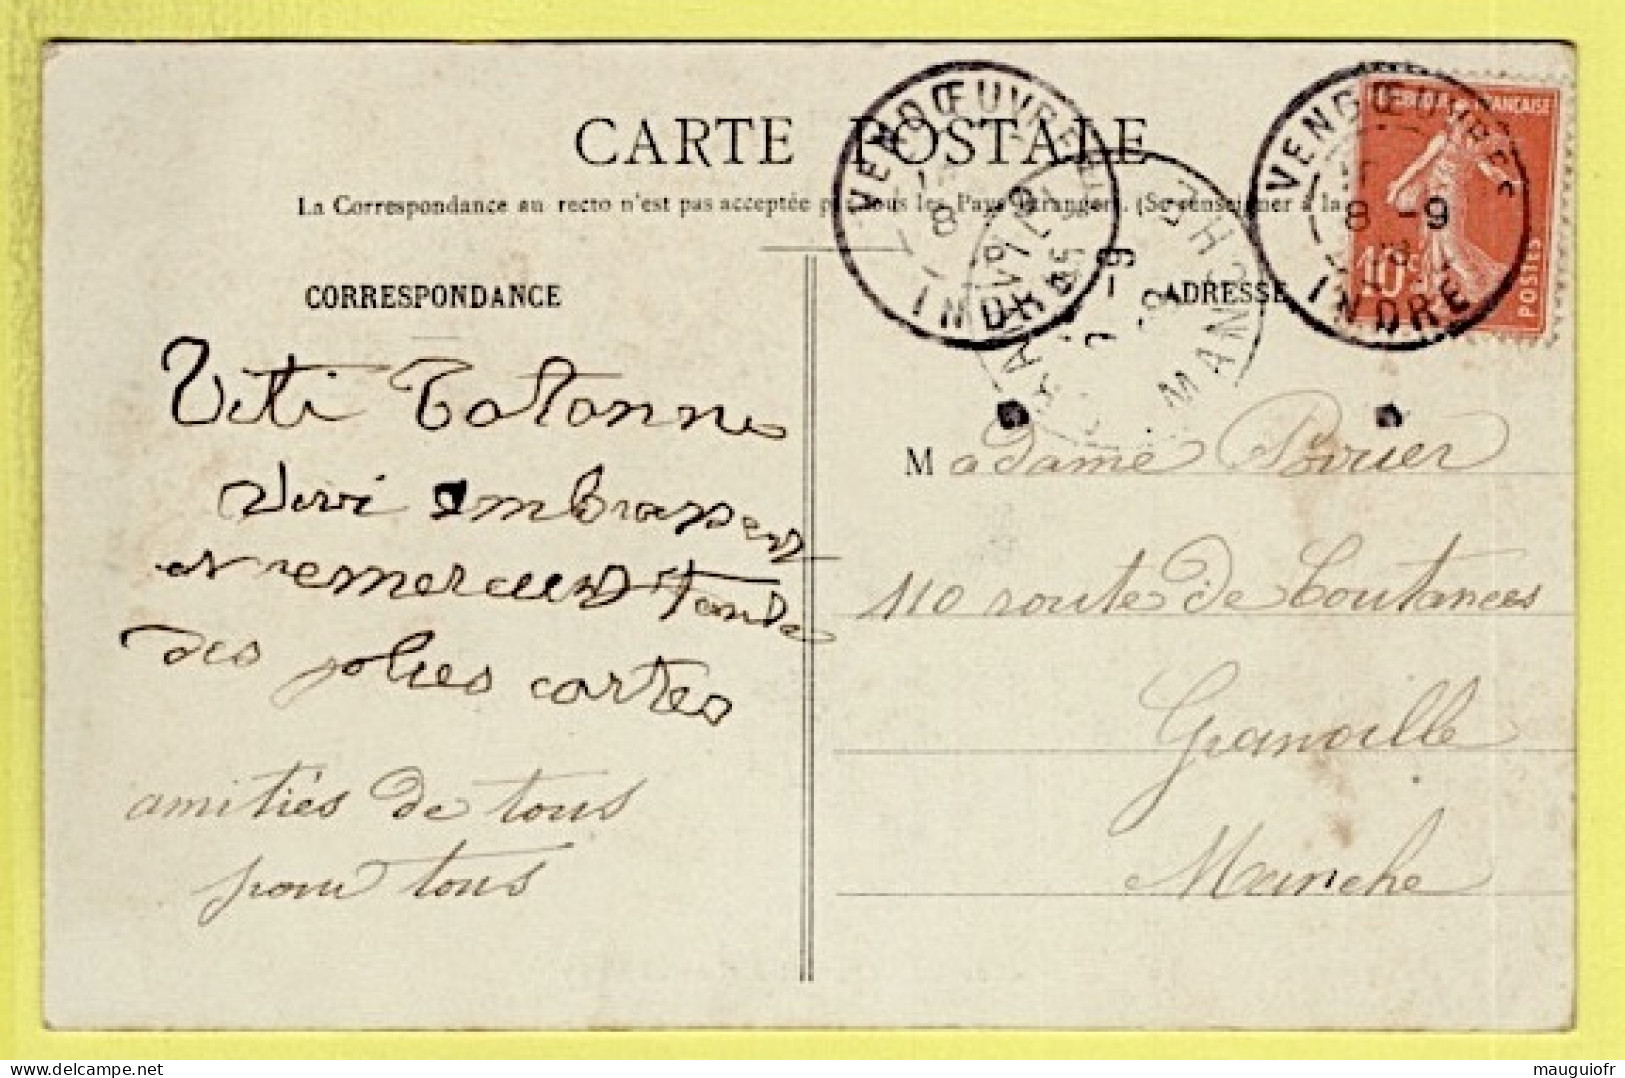 CARTE POSTALE
La Correspondance au recto n'est pas acceptée par tous les Pays étrangers. (Se renseigner à la
VENDŒUVRES
8
INDRE
VENDŒUVRES
8 -9
INDRE
RÉPUBLIQUE FRANÇAISE
10c
POSTES
GRANVILLE
MANCHE
CORRESPONDANCE
ADRESSE
Titi Totonne
Vivi embrassent
et remercient Tande
des jolies cartes
amitiés de tous
pour tous
Madame Poirier
110 route de Coutances
Granville
Manche
mauguiofr